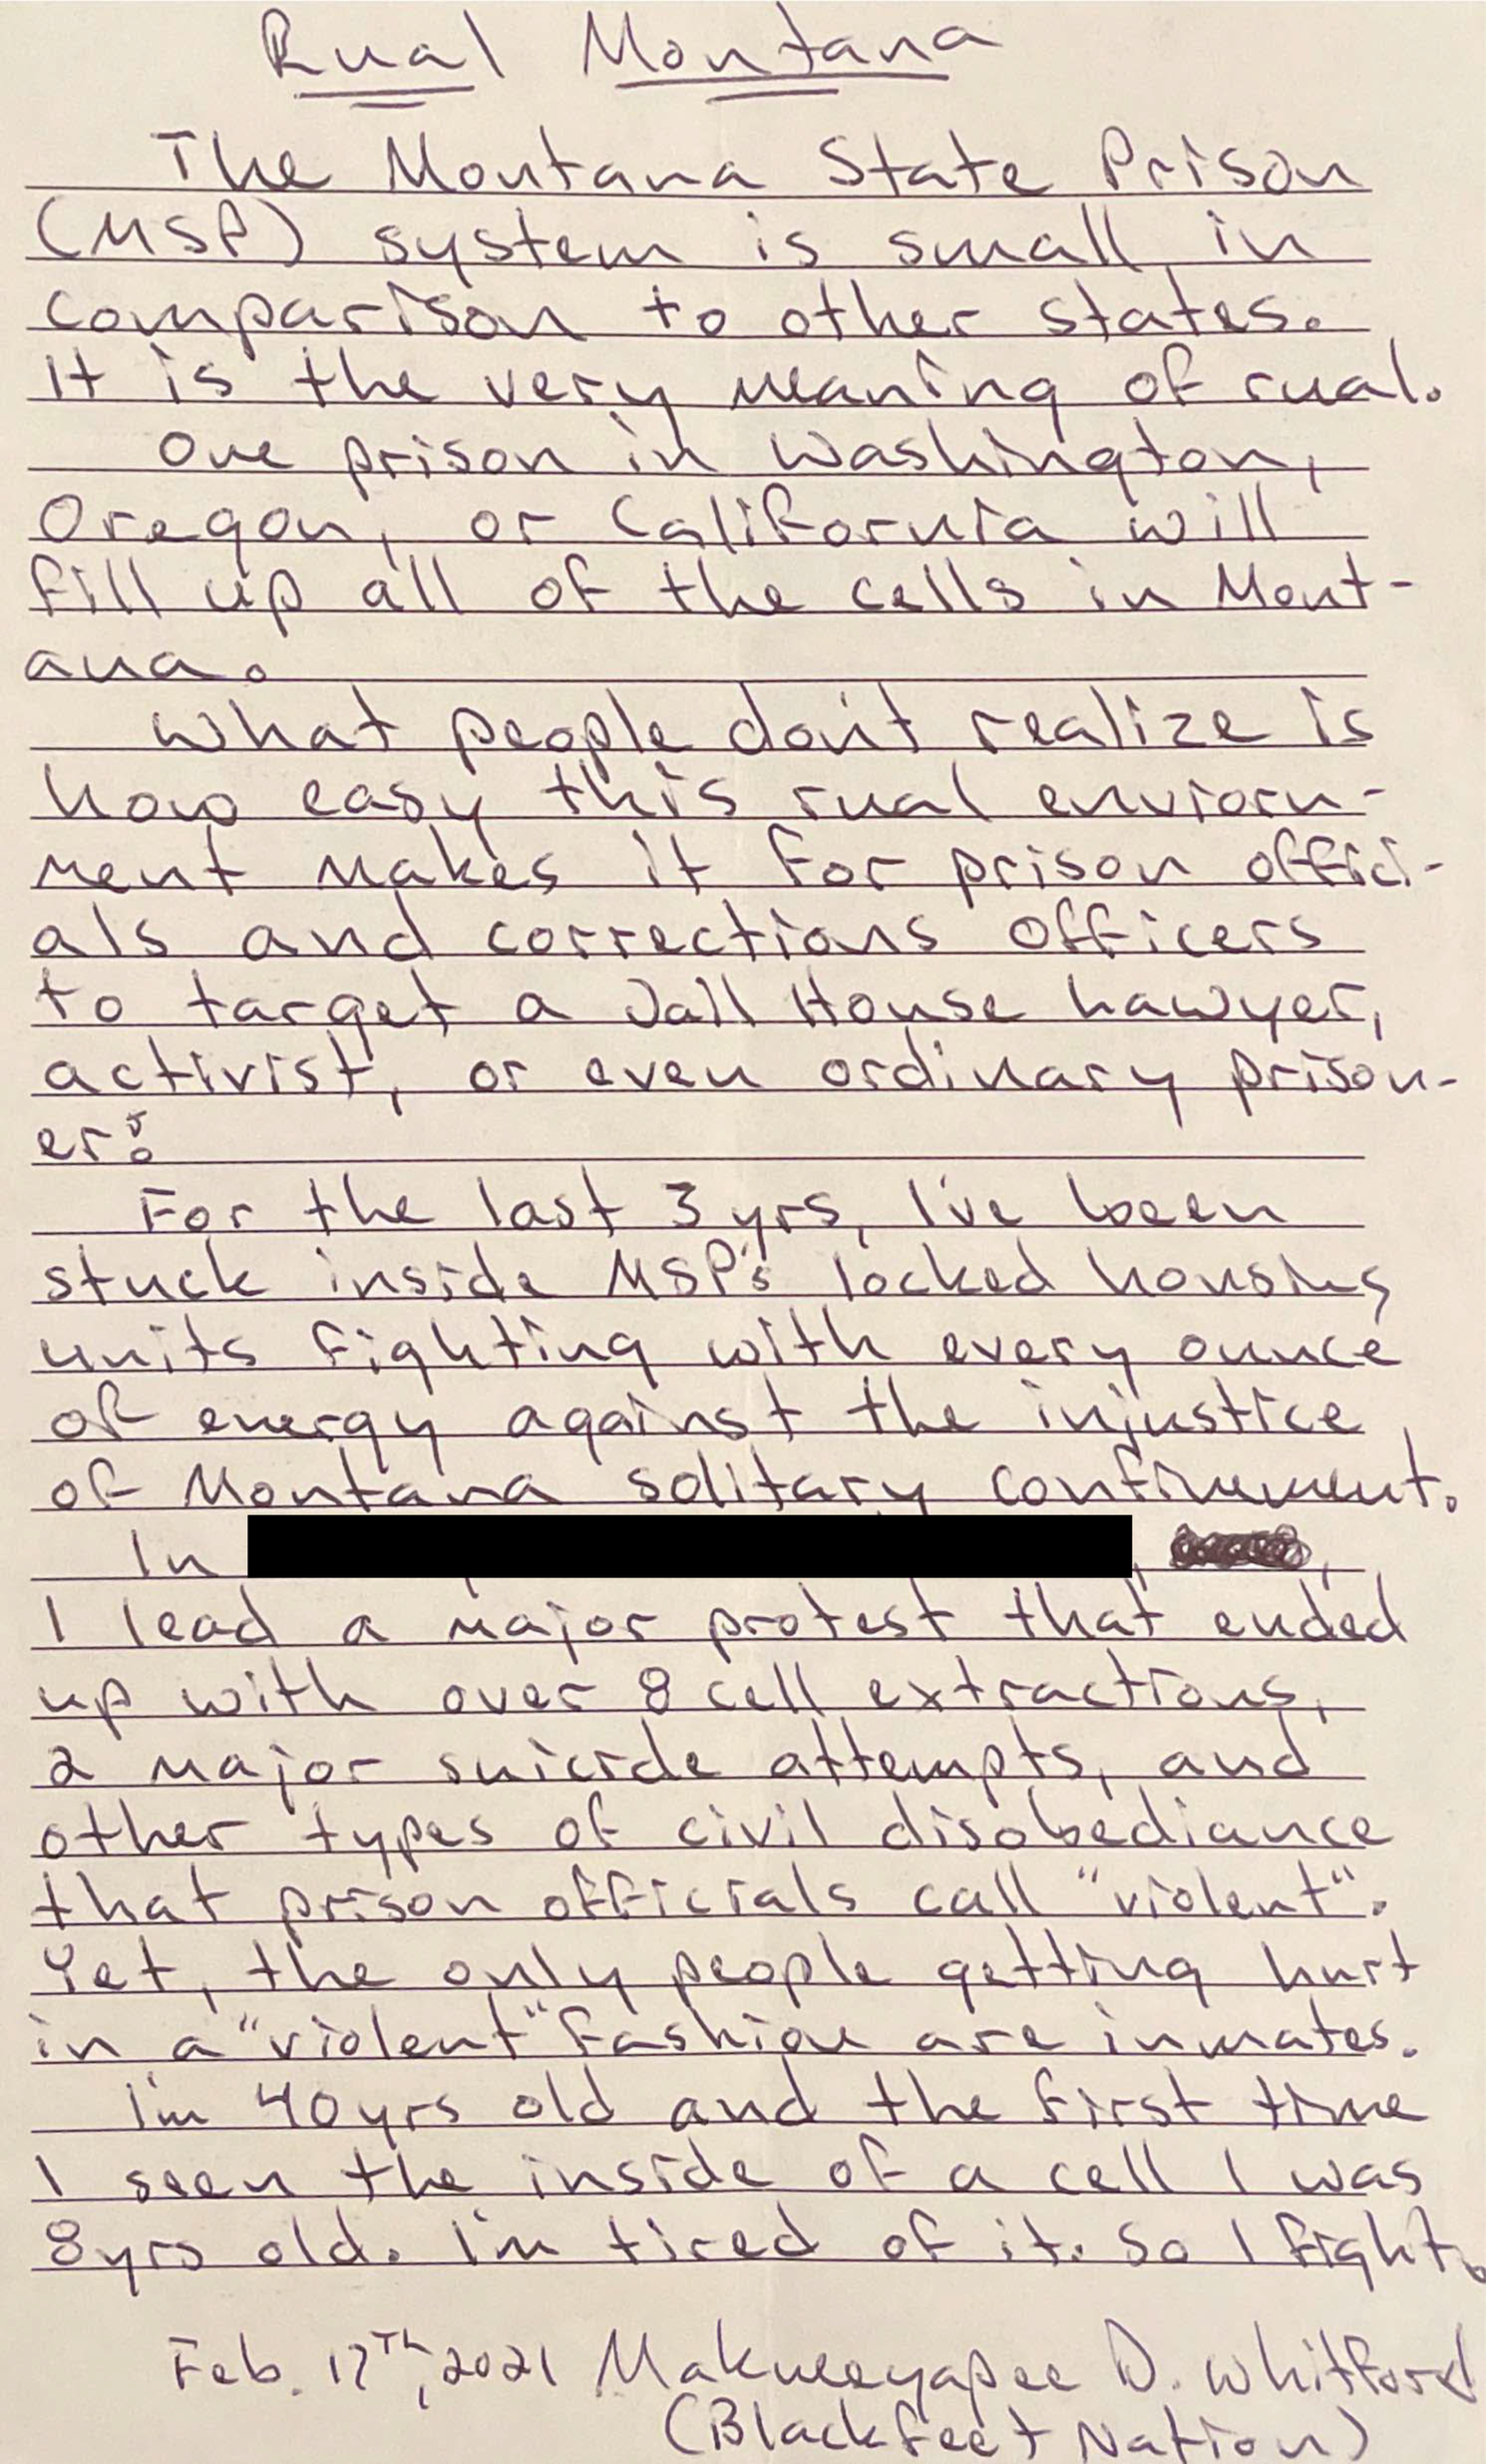 Rual Montana
The Montana State Prison
(MSP) system is small in
comparison to other states.
It is the very meaning of rual.
One prison in Washington,
Oregon, or California will
fill up all of the cells in Mont-
ana.
What people don't realize is
how easy this rual enviorn-
ment makes it for prison offici-
als and corrections officers
to target a Jail House Lawyer,
activist, or even ordinary prison-
er.
For the last 3 yrs, I've been
stuck inside MSP's locked housing
units fighting with every ounce
of energy against the injustice
of Montana solitary confinement.
In
I lead a major protest that ended
up with over 8 cell extractions,
2 major suicide attempts, and
other types of civil disobediance
that prison officials call "violent".
Yet, the only people getting hurt
in a "violent" fashion are inmates.
I'm 40yrs old and the first time
I seen the inside of a cell I was
8yrs old. I'm tired of it. So I fight.
Feb. 17th, 2021 Makueeyapee D. Whitford
(Blackfeet Nation)